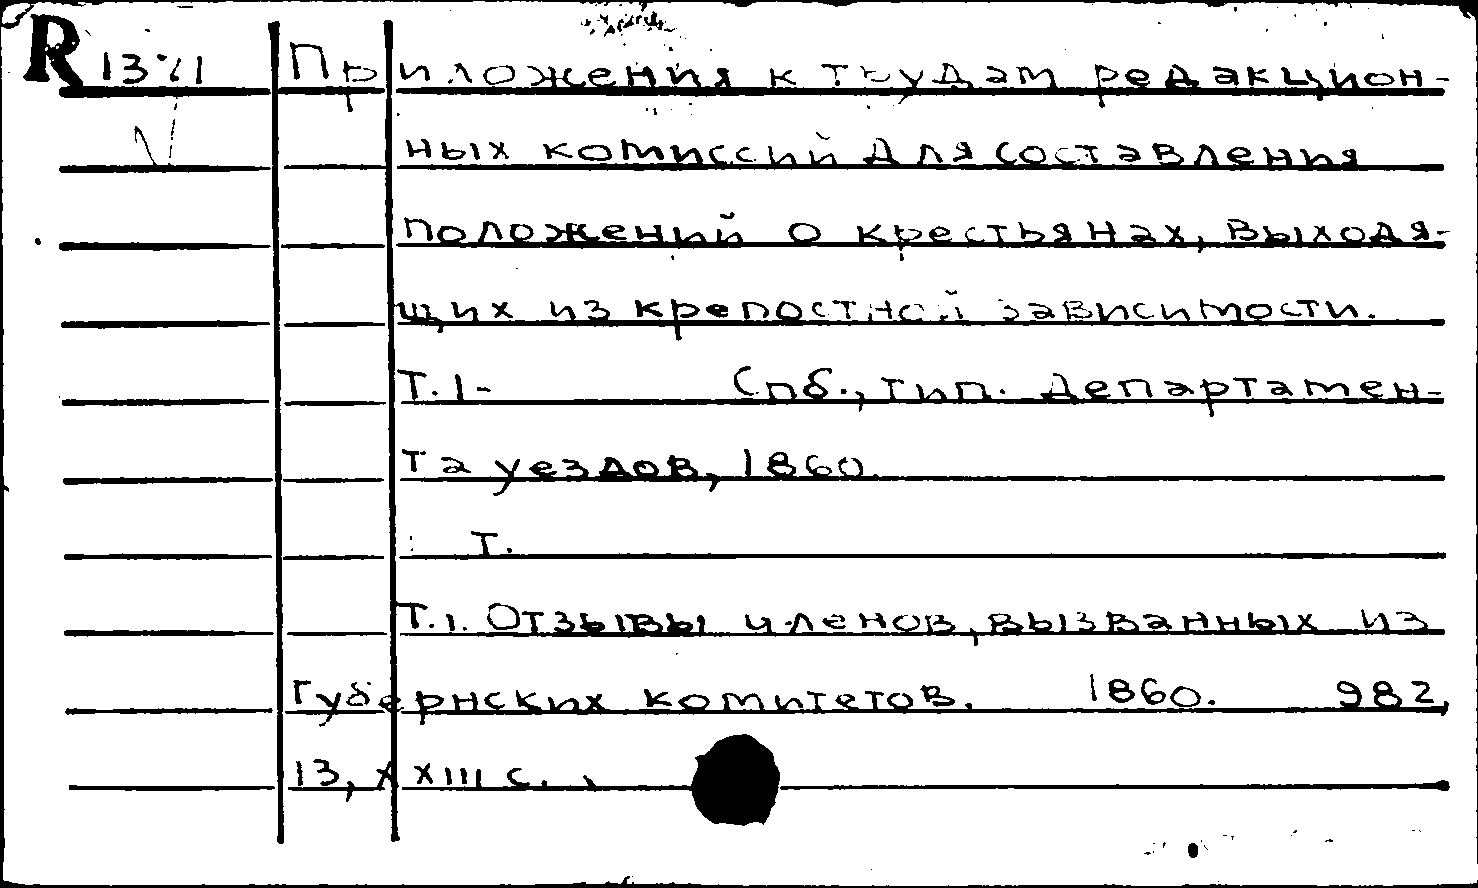 R Приложения к трудам редакцион-
ных комиссий для составления
положений о крестьянах, выходя-
щих из крепостной зависимости.
Т.1- Спб., тип. Департамен-
та уездов, 1860.
Т.
Т.1. Отзывы членов, вызванных из
губернских комитетов. 1860. 982,
13, XXIII с.